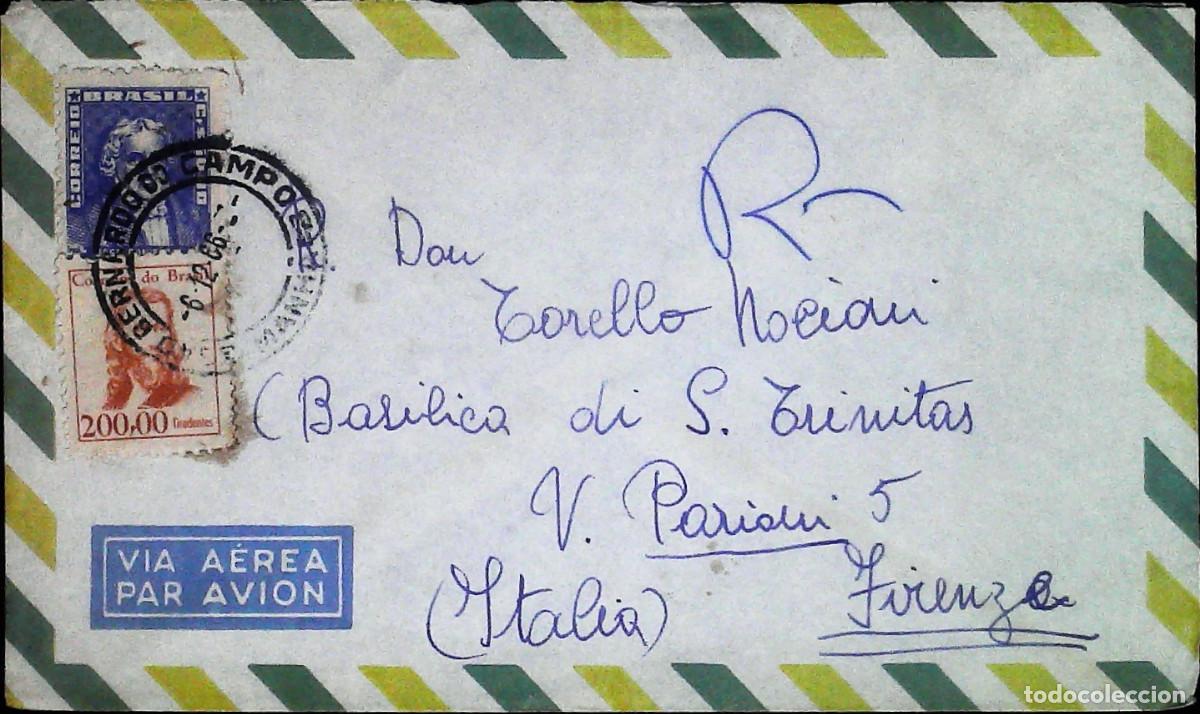 CORREIO BRASIL
BERNARDO DO CAMPO
MANHÃ
-6.12.66
do Brasil
200,00 Tiradentes
R
Don
Torello Nociani
(Basilica di S. Trinitas
V. Parioni 5
(Italia) Firenze
VIA AÉREA
PAR AVION
todocoleccion